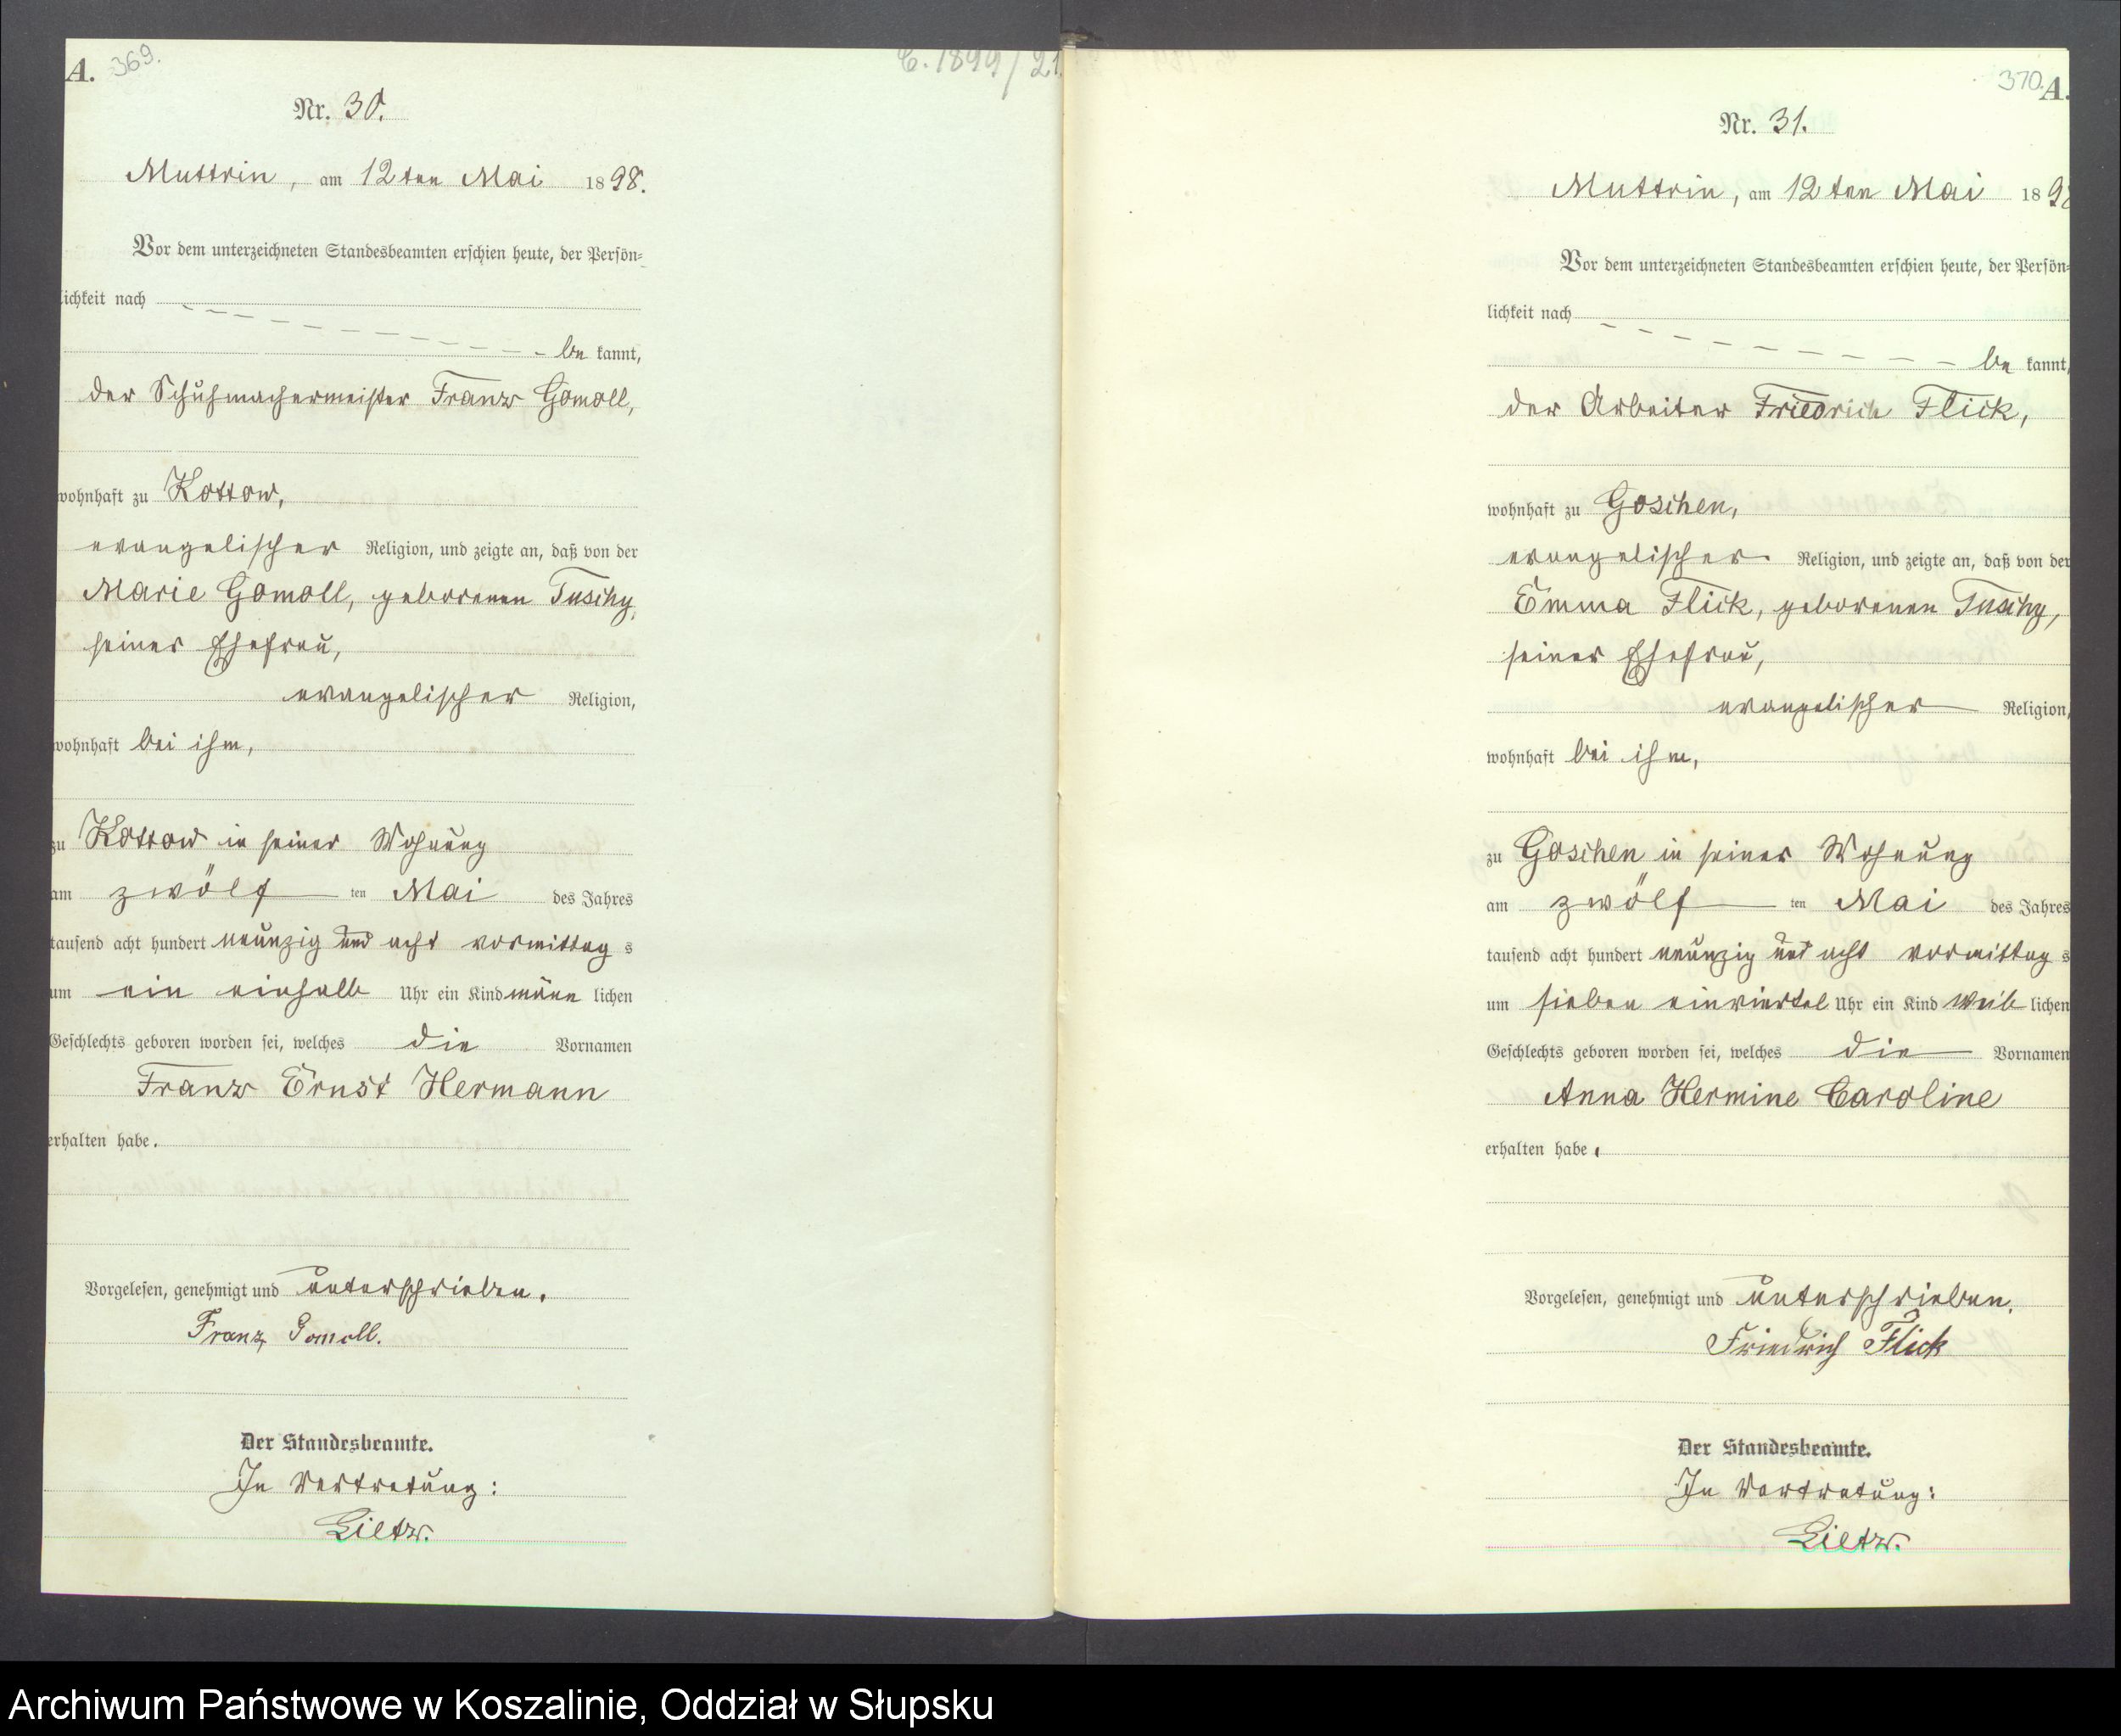 A. 369.
C. 1899/21
Nr. 30.
Muttrin, am 12ten Mai 1898.
Vor dem unterzeichneten Standesbeamten erschien heute, der Persön-
lichkeit nach
be kannt,
der Schuhmachermeister Franz Gomoll,
wohnhaft zu Kottow,
evangelischer Religion, und zeigte an, daß von der
Marie Gomoll, geborenen Tuschy,
seiner Ehefrau,
evangelischer Religion,
wohnhaft bei ihm,
zu Kottow in seiner Wohnung
am zwölf ten Mai des Jahres
tausend acht hundert neunzig und acht vormittag s
um ein einhalb Uhr ein Kind männ lichen
Geschlechts geboren worden sei, welches die Vornamen
Franz Ernst Hermann
erhalten habe.
Vorgelesen, genehmigt und unterschrieben.
Franz Gomoll.
Der Standesbeamte.
In Vertretung:
Lietz.
370. A.
Nr. 31.
Muttrin, am 12ten Mai 1898
Vor dem unterzeichneten Standesbeamten erschien heute, der Persön-
lichkeit nach
be kannt,
der Arbeiter Friedrich Flick,
wohnhaft zu Goschen,
evangelischer Religion, und zeigte an, daß von der
Emma Flick, geborenen Tuschy,
seiner Ehefrau,
evangelischer Religion,
wohnhaft bei ihm,
zu Goschen in seiner Wohnung
am zwölf ten Mai des Jahres
tausend acht hundert neunzig und acht vormittag s
um sieben einviertel Uhr ein Kind weib lichen
Geschlechts geboren worden sei, welches die Vornamen
Anna Hermine Caroline
erhalten habe.
Vorgelesen, genehmigt und unterschrieben.
Friedrich Flick
Der Standesbeamte.
In Vertretung:
Lietz.
Archiwum Państwowe w Koszalinie, Oddział w Słupsku